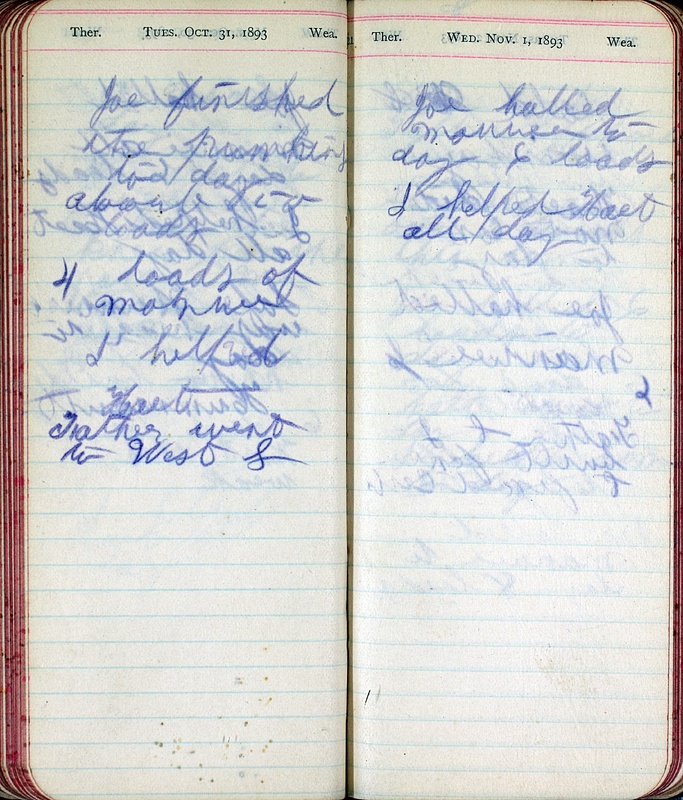 Ther. TUES. OCT. 31, 1893 Wea.
Joe finished
the
to day
about
loads
4 loads of
manure
I helped
Haet
Father went
to West
Ther. WED. NOV. 1, 1893 Wea.
Joe halled
manure to
day & loads
I helped Haet
all day